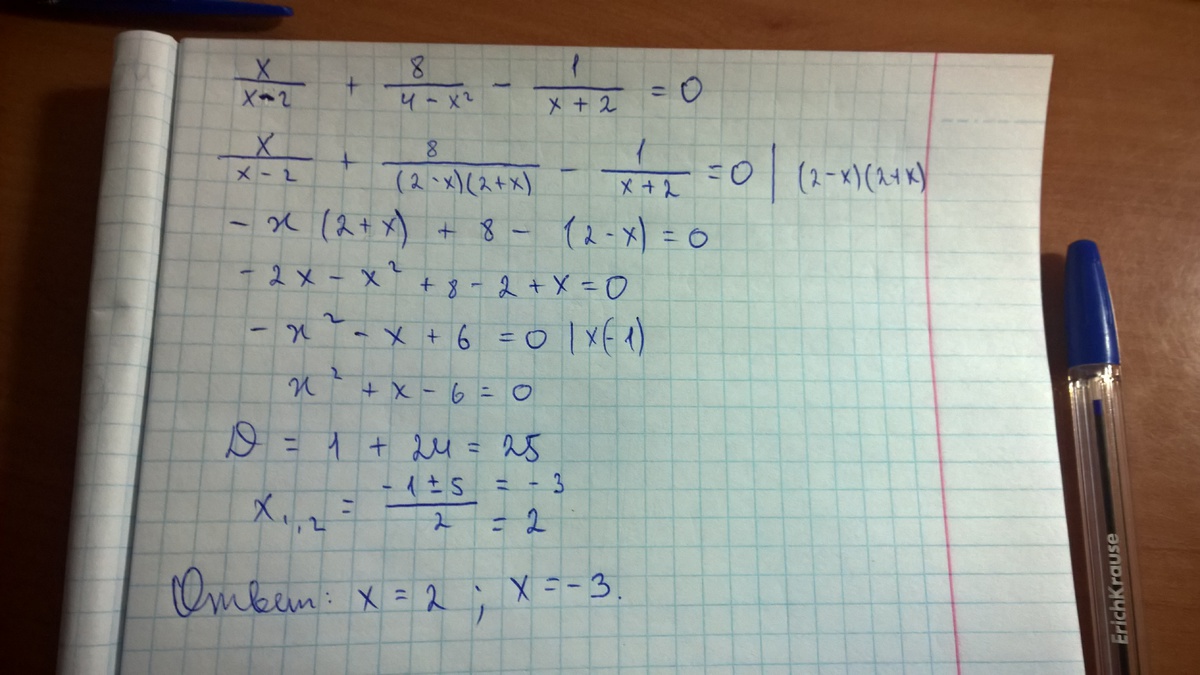 x/(x-2) + 8/(4-x²) - 1/(x+2) = 0
x/(x-2) + 8/((2-x)(2+x)) - 1/(x+2) = 0 | (2-x)(2+x)
- x (2+x) + 8 - 1(2-x) = 0
- 2x - x² + 8 - 2 + x = 0
- x² - x + 6 = 0 | x(-1)
x² + x - 6 = 0
D = 1 + 24 = 25
x₁,₂ = (-1 ± 5)/2 = -3
= 2
Ответ: x = 2 ; x = -3.
ErichKrause